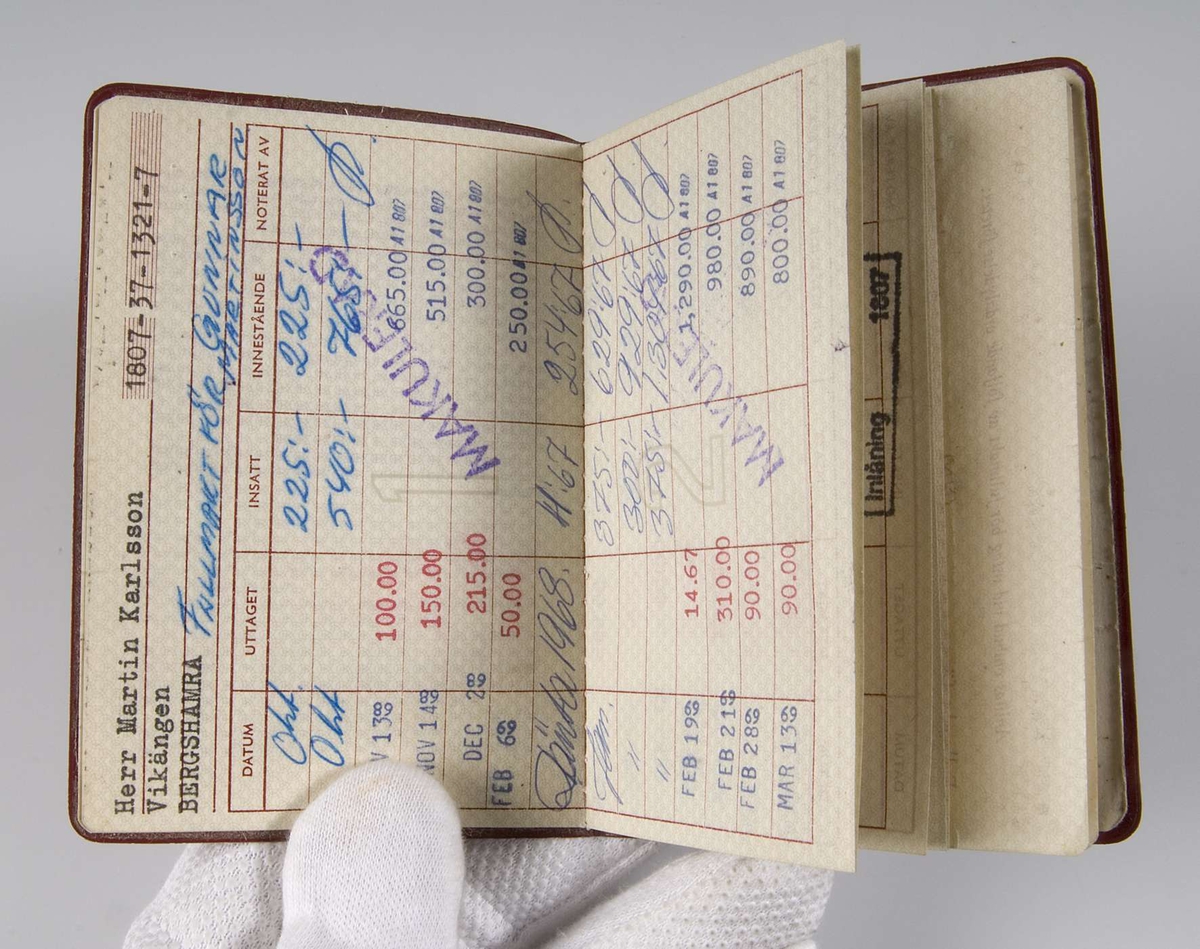 1807-37-1321-7
Herr Martin Karlsson
Vikängen
BERGSHAMRA FULLMAKT FÖR GUNNAR
MARTINSSON
DATUM UTTAGET INSATT INNESTÅENDE NOTERAT AV
Okt. 225:- 225:-
Okt 540:- 765:-
V 13 100.00 665.00 A1 807
NOV 14 150.00 515.00 A1 807
DEC 2 215.00 300.00 A1 807
FEB 6 50.00 250.00 A1 807
Ränta 1968. 4:67 254:67
MAKULERAD
1
Jan. 375:- 629:67
" 300:- 929:67
" 375:- 1.304:67
FEB 19 14.67 1,290.00 A1 807
FEB 21 310.00 980.00 A1 807
FEB 28 90.00 890.00 A1 807
MAR 13 90.00 800.00 A1 807
MAKULE
2
Inlåning 1807